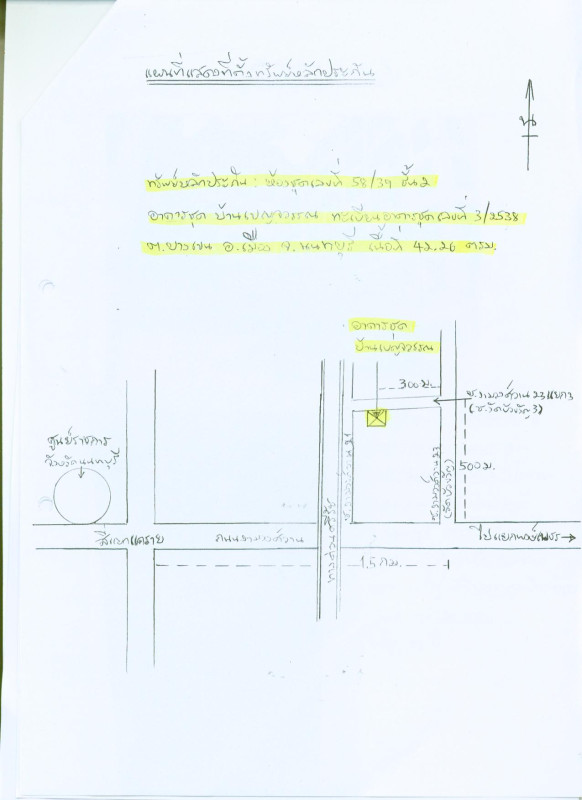 แผนที่แสดงที่ตั้งทรัพย์หลักประกัน
น
ทรัพย์หลักประกัน : ห้องชุดเลขที่ 58/39 ชั้น 2
อาคารชุด บ้านเบญจวรรณ ทะเบียนอาคารชุดเลขที่ 3/2538
ต.บางเขน อ.เมือง จ.นนทบุรี เนื้อที่ 42.26 ตรม.
อาคารชุด
บ้านเบญจวรรณ
300 ม.
ซ.งามวงศ์วาน 23 แยก 3
(ซ.วัดบัวขวัญ 3)
ศูนย์ราชการ
จังหวัดนนทบุรี
ซ.งามวงศ์วาน 21
ซ.งามวงศ์วาน 23
(วัดบัวขวัญ)
500 ม.
สี่แยกแคราย
ถนนงามวงศ์วาน
ทางด่วนศรีรัช
ไปแยกพงษ์เพชร
1.5 กม.